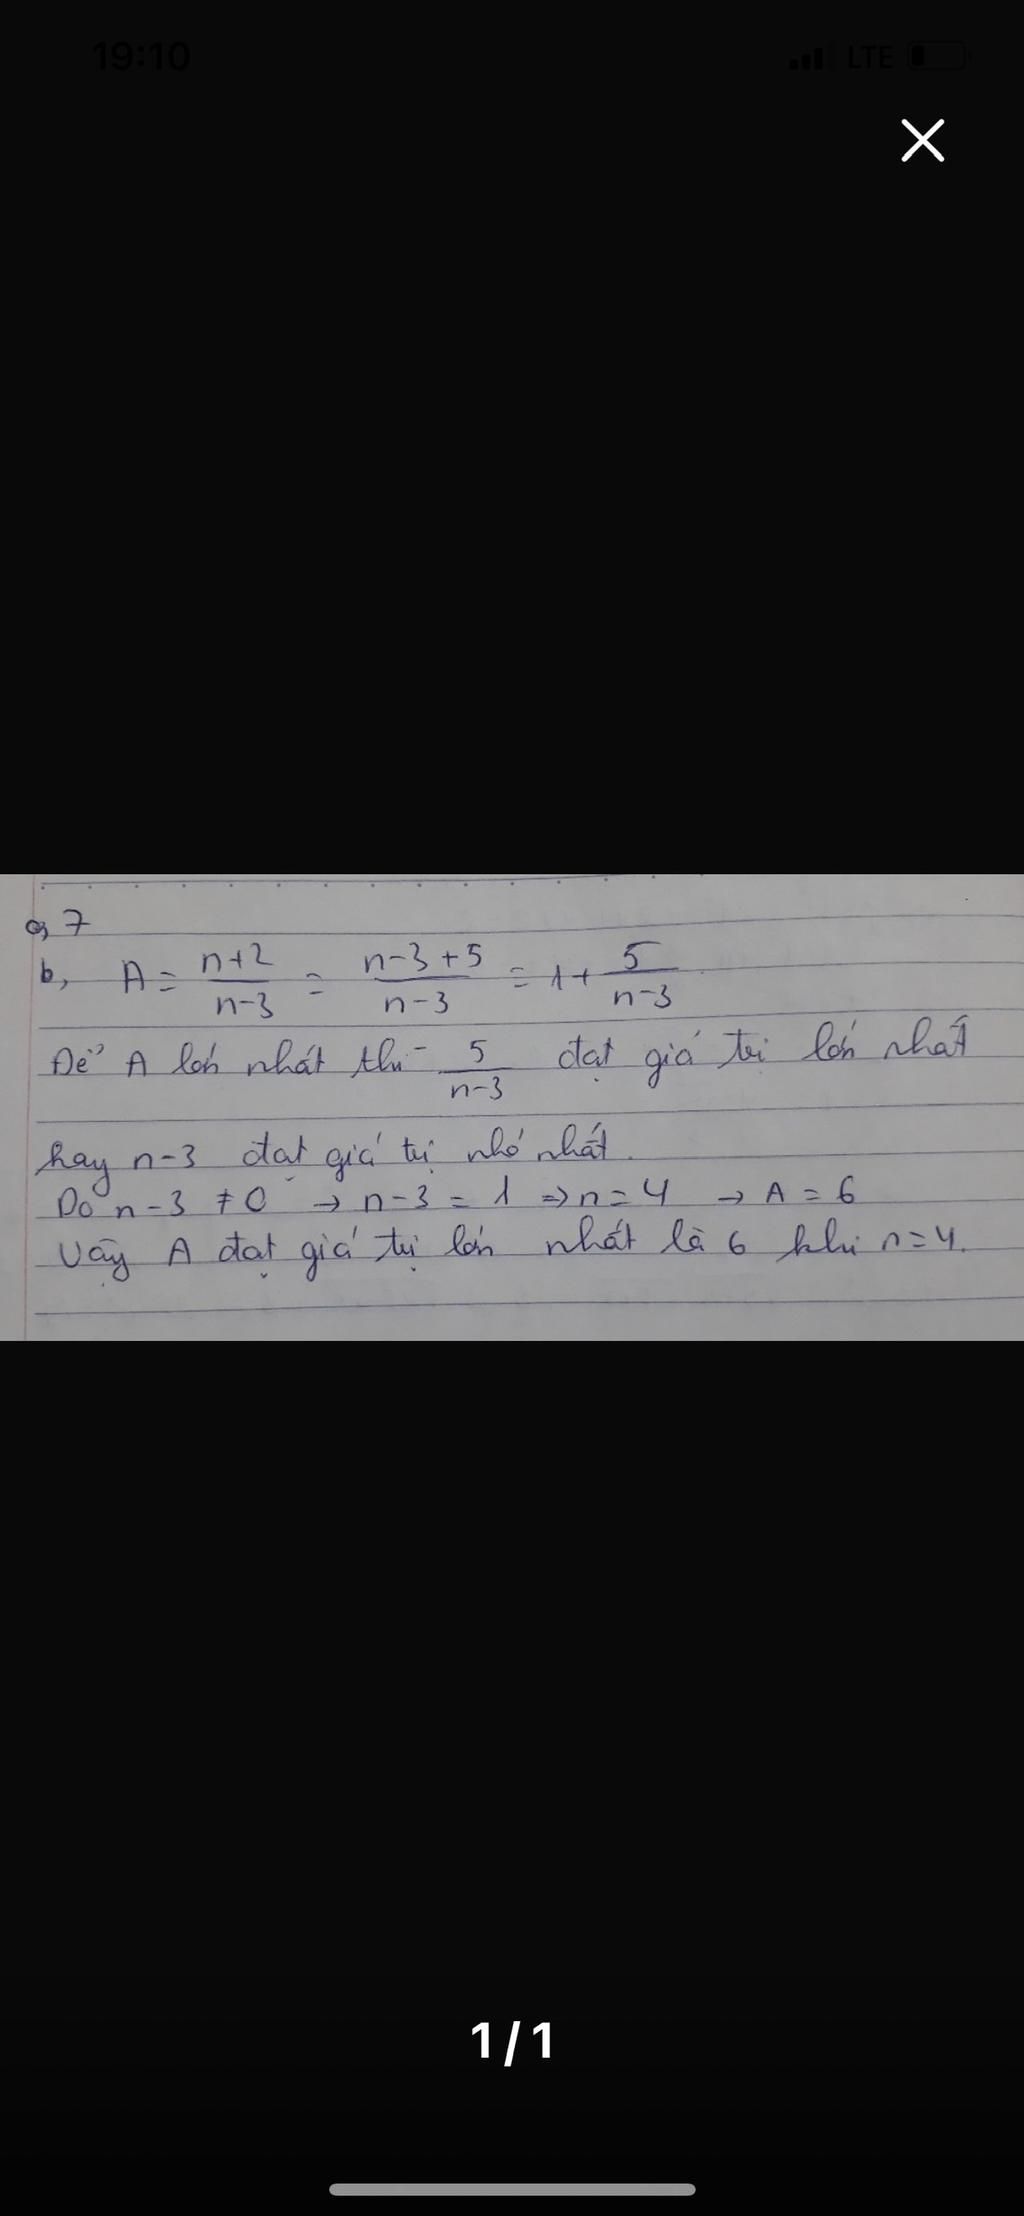 19:10
LTE
a, 7
b, A = \frac{n+2}{n-3} = \frac{n-3+5}{n-3} = 1 + \frac{5}{n-3}
Để A lớn nhất thì \frac{5}{n-3} đạt giá trị lớn nhất
hay n-3 đạt giá trị nhỏ nhất.
Do n-3 ≠ 0 → n-3 = 1 => n = 4 → A = 6
Vậy A đạt giá trị lớn nhất là 6 khi n = 4.
1/1